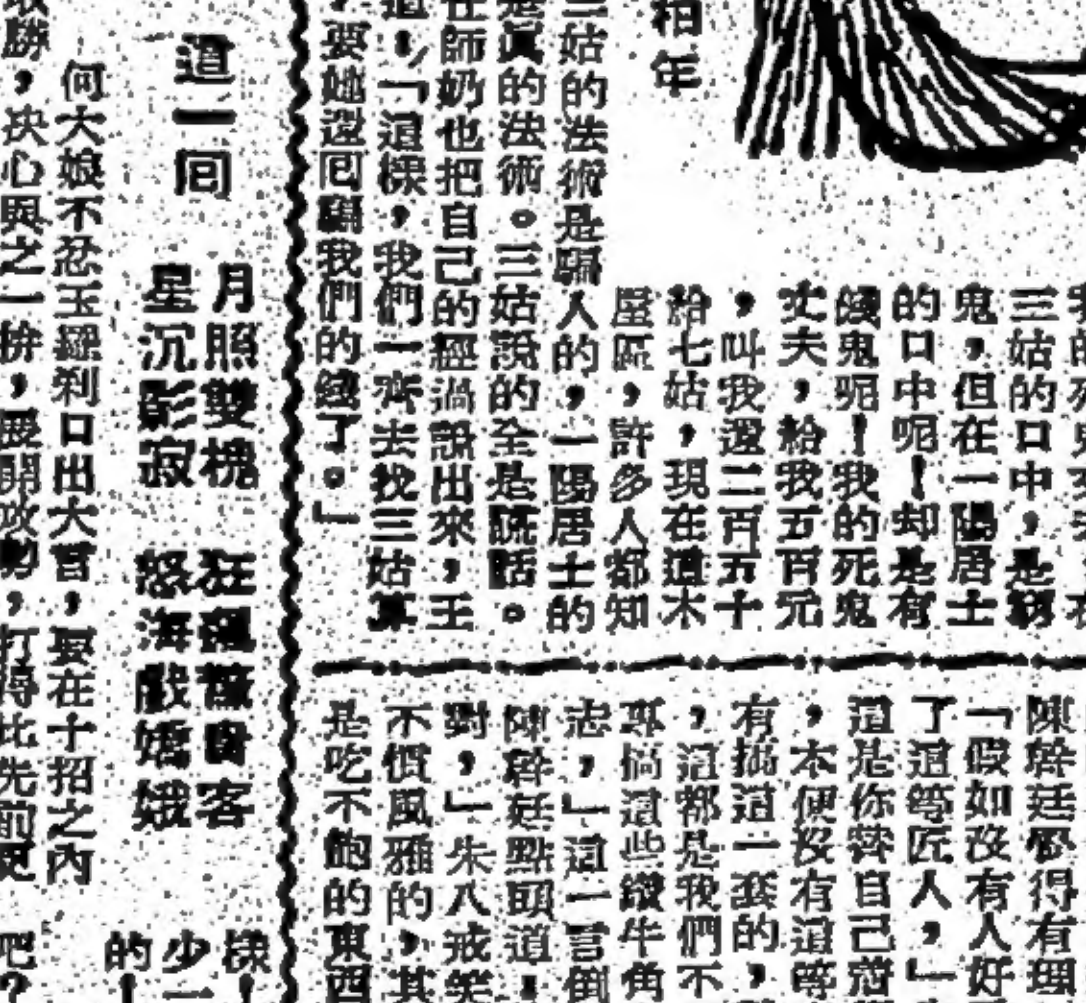 柏年
三姑的口中，是窮
鬼，但在一陽居士
的口中呢！却是有
錢鬼呢！我的死鬼
丈夫，給我五百元
，叫我還二百五十
給七姑，現在道木
屋區，許多人都知
三姑的法術是騙人的，一陽居士的
是真的法術。三姑說的全是謊話。
在師奶也把自己的經過說出來，王
道，「這樣，我們一齊去找三姑算
，要她還囘騙我們的錢了。」
陳幹廷覺得有理
「假如沒有人好
了這等匠人，」
這是你替自己
，本便沒有這等
有搞這一套的，
，這都是我們不
專搞這些鑽牛角
志，」這一言倒
陳幹廷點頭道：
對，」朱八戒笑
不慣風雅的，其
是吃不飽的東西
道一囘
月照雙槐
星沉影寂
狂客
怒海戲嬌娥
樣！
少一
的！
何大娘不忍玉羅刹口出大言，要在十招之內
敗勝，决心與之一拚，展開攻勢，打得比先前更
吧？